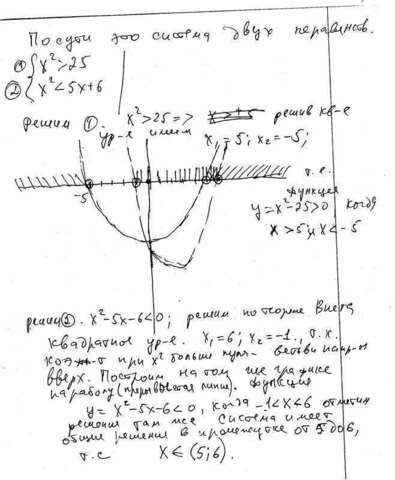 По сути это система двух неравенств.
① { x² > 25
② { x² < 5x+6
решим ①. x² > 25 => решив кв-е
ур-е имеем x₁ = 5; x₂ = -5;
-5
т.е.
функция
y = x² - 25 > 0 когда
x > 5 и x < -5
решим ②. x² - 5x - 6 < 0; решим по теореме Виета
квадратное ур-е. x₁ = 6; x₂ = -1., т.к.
коэф-т при x² больше нуля - ветви напр-ы
вверх. Построим на том же графике
параболу (прерывистая линия). Функция
y = x² - 5x - 6 < 0, когда -1 < x < 6 отметим
решения там же. Система имеет
общие решения в промежутке от 5 до 6,
т.е x ∈ (5; 6).